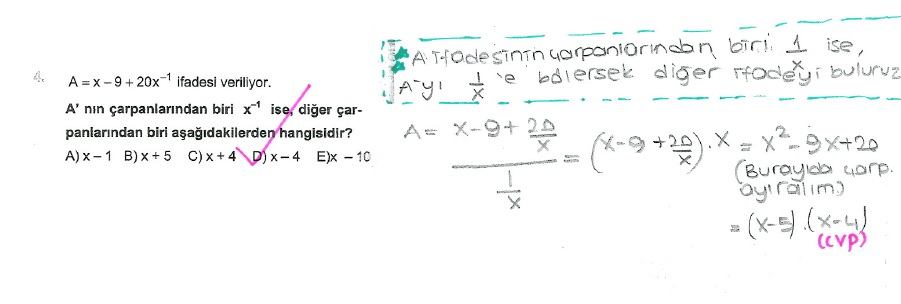 4.
A = x – 9 + 20x⁻¹ ifadesi veriliyor.
A' nın çarpanlarından biri x⁻¹ ise, diğer çar-
panlarından biri aşağıdakilerden hangisidir?
A) x – 1 B) x + 5 C) x + 4 D) x – 4 E)x – 10
A ifadesinin çarpanlarından biri 1/x ise,
A'yı 1/x 'e bölersek diğer ifadeyi buluruz
A = (x-9+20/x)/(1/x) = (x-9+20/x).x = x²-9x+20
(Burayıda çarp.
ayıralım)
= (x-5).(x-4)
(cvp)